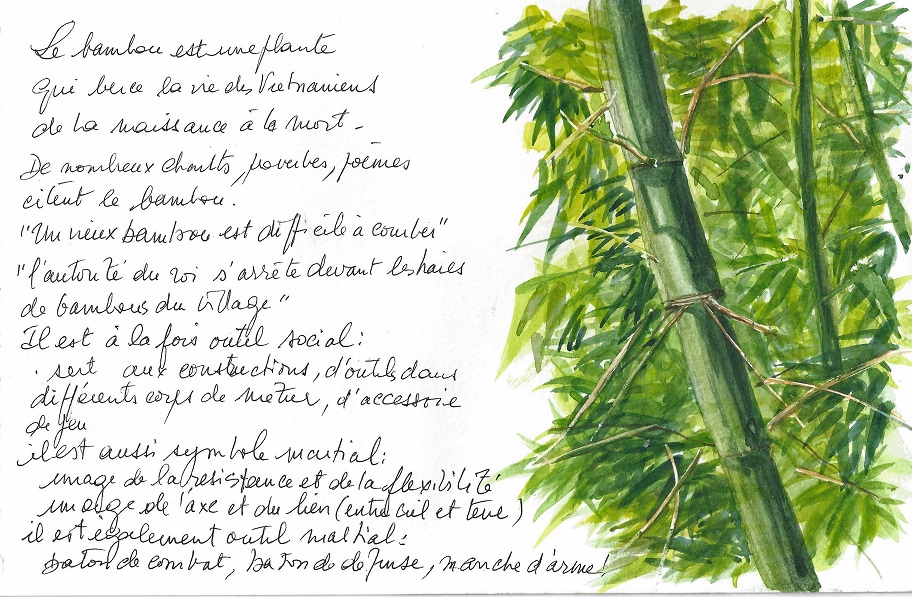 Le bambou est une plante
qui berce la vie des Vietnamiens
de la naissance à la mort -
De nombreux chants, proverbes, poèmes
citent le bambou.
"Un vieux bambou est difficile à courber"
"l'autorité du roi s'arrête devant les haies
de bambous du village"
Il est à la fois outil social :
. sert aux constructions, d'outils dans
différents corps de métier, d'accessoire
de jeu
il est aussi symbole martial :
image de la résistance et de la flexibilité
image de l'axe et du lien (entre ciel et terre)
il est également outil martial :
baton de combat, baton de défense, manche d'arme !